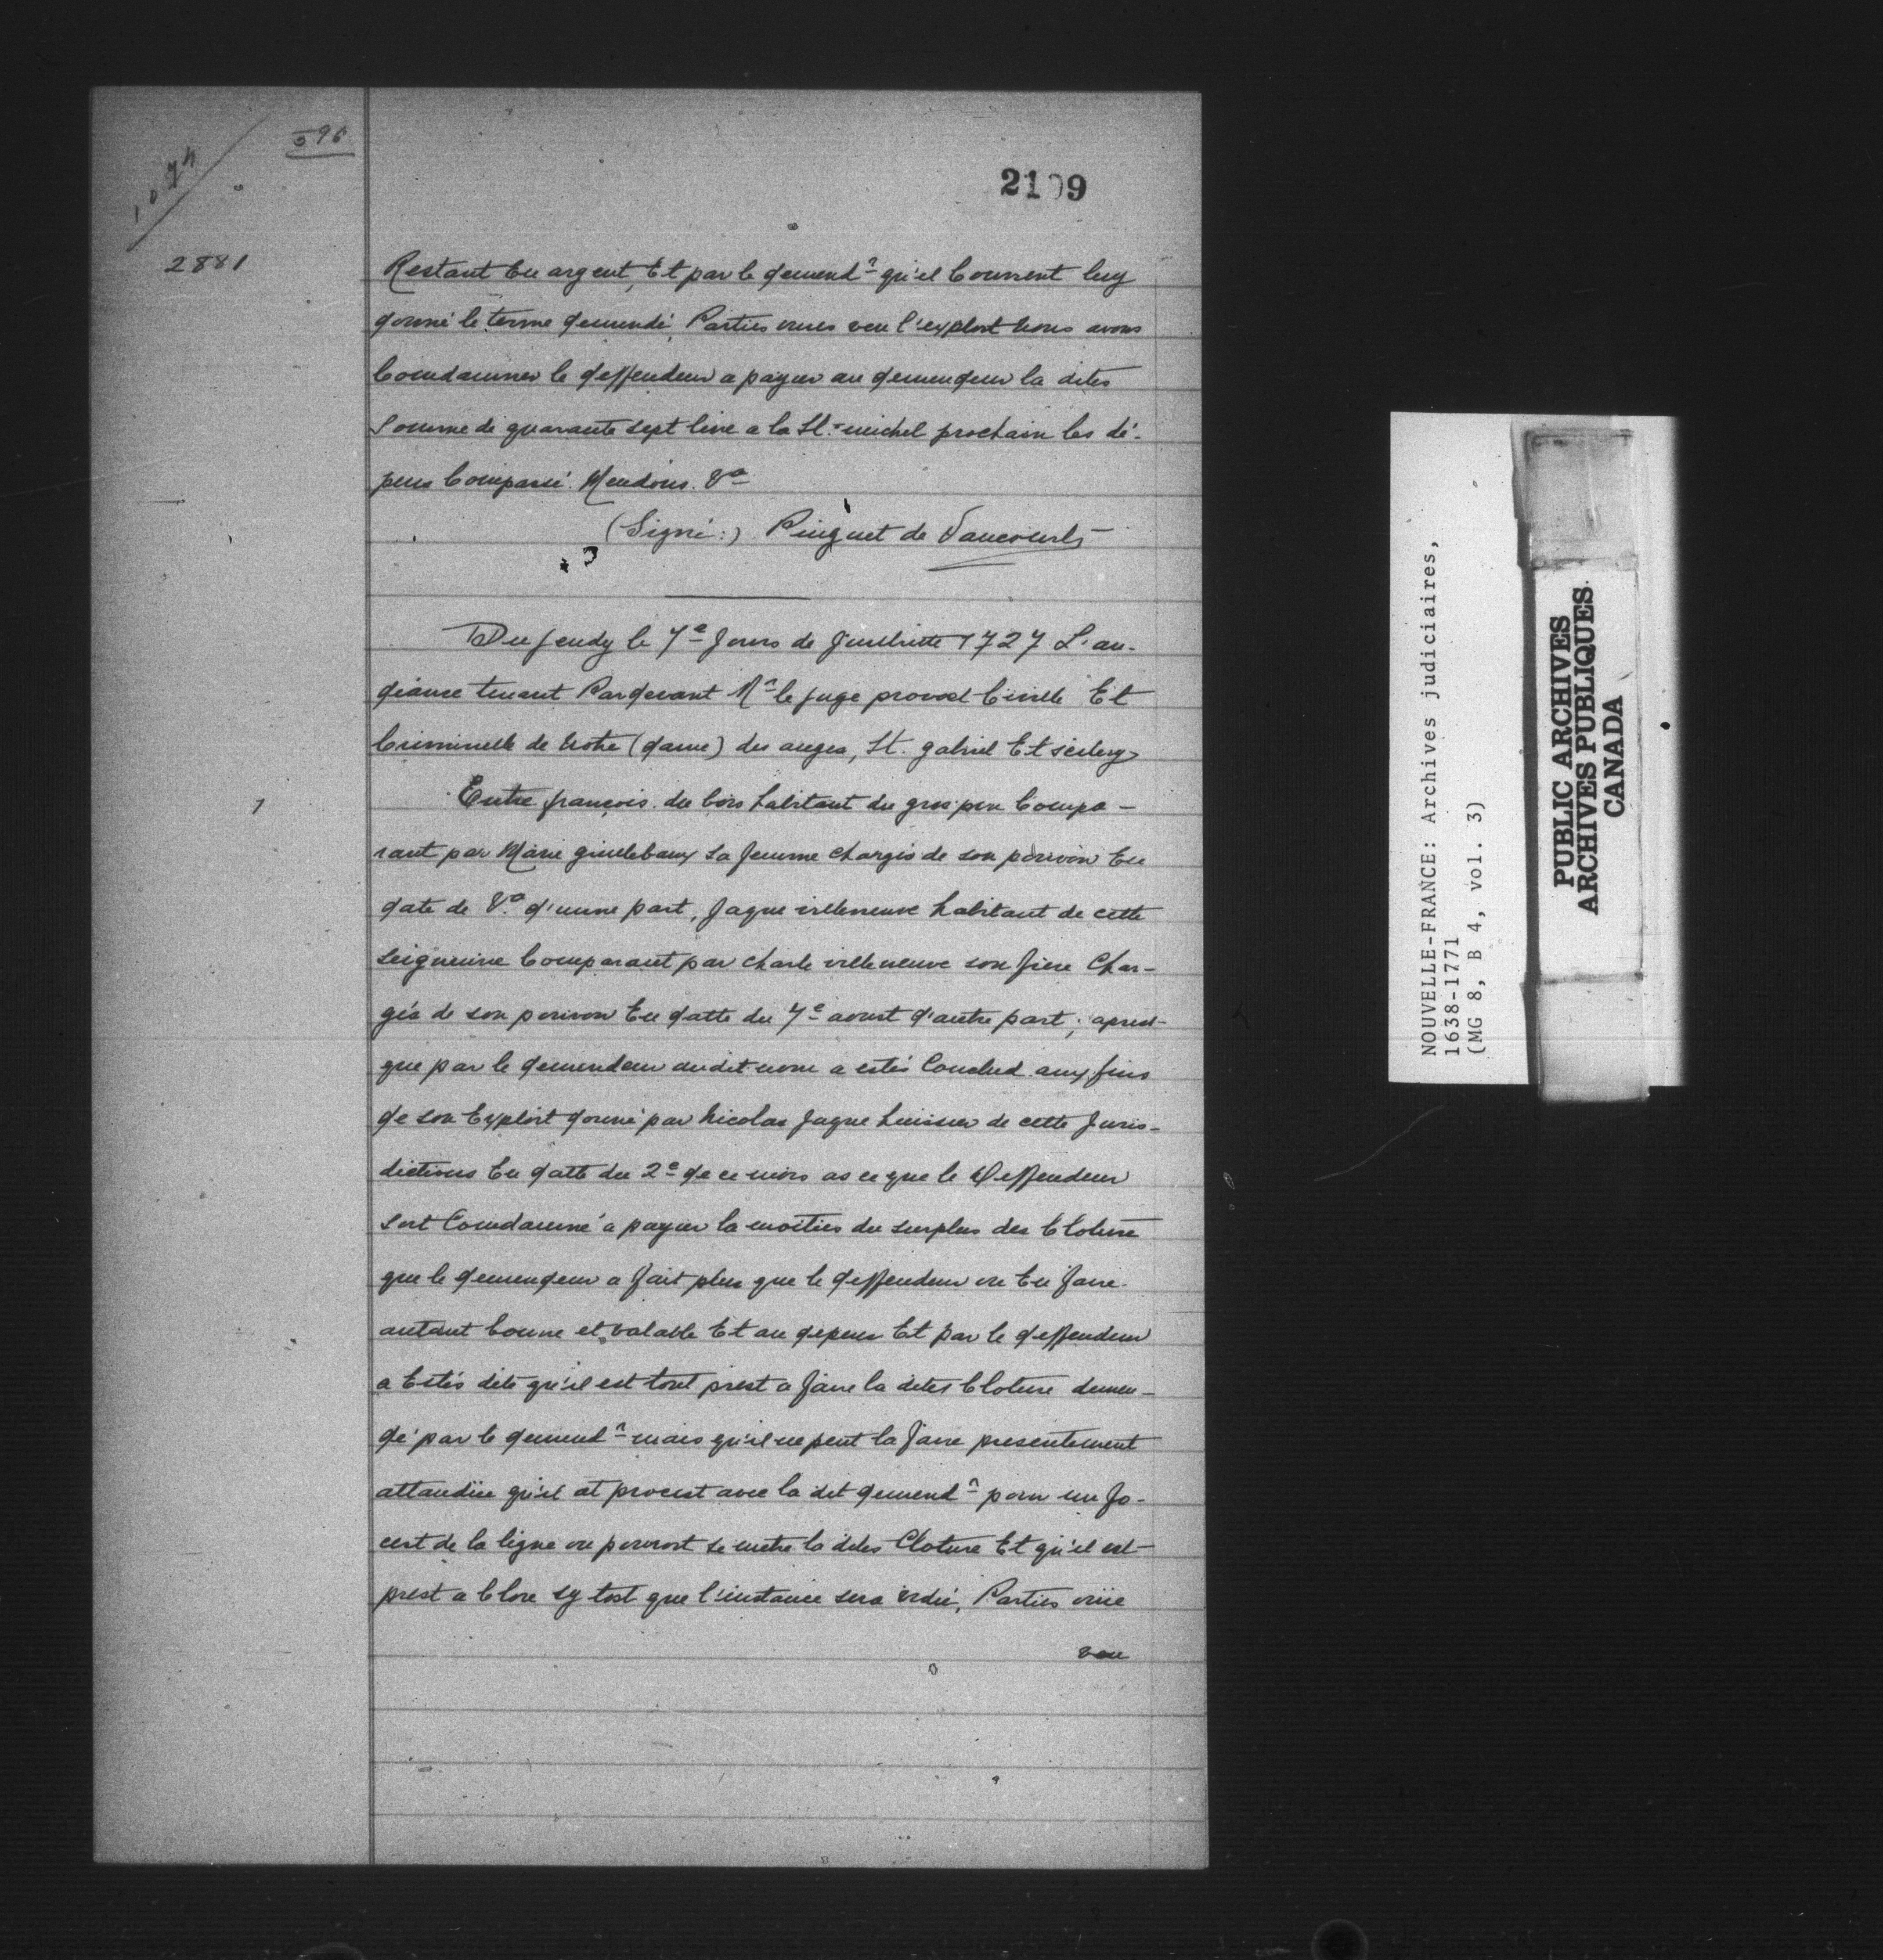 596
1074
2109
2881
Restant En argent, Et par le demend^r qu'il Consent luy
donné le terme demendé, Parties ouies veu l'exploit nous avons
Condamner le deffendeur a payer au demendeur la dites
somme de quarante sept livre a la St. michel prochain les dé-
pens Compassé. Mendons. &a
(Signé:) Pinguet de Vaucourts
Du jeudy le 7e Jours de Juilliette 1727 L'au-
diance tenant Pardevant Mr le juge provost Civille Et
Criminelle de Notre (dame) des anges, St. gabriel Et sillery
1
Entre françois du bois habitant du gros pin Compa-
rant par Marie guillebaux sa femme chargés de son pouvoir En
date de &a d'unne part, Jaque villeneuve habitant de cette
Seigneurie Comparant par charle villeneuve son frere Char-
gés de son pouvoir En datte du 7e aoust d'autre part; apres
que par le demendeur audit nom a estés Conclud aux fins
de son Exploit donné par Nicolas Jaque huissier de cette Juris-
dictions En datte du 2e de ce mois as ce que le Deffendeur
soit Condamné a payer la moities du surplus des Cloture
que le demendeur a fait plus que le deffendeur ou En faire
autant bonne et valable Et au depens Et par le deffendeur
a Estés dits qu'il est tout prest a faire la dites Cloture demen-
dé par le demend^r mais qu'il ne peut la faire presentement
attandüe qu'il at procest avec la dit demend^r pour un fo-
cest de la ligne ou pouront se mettre la dites Cloture Et qu'il est
prest a Clore sy tost que l'instance sera vidé, Parties ouïe
veu
NOUVELLE-FRANCE: Archives judiciaires,
1638-1771
(MG 8, B 4, vol. 3)
PUBLIC ARCHIVES
ARCHIVES PUBLIQUES
CANADA